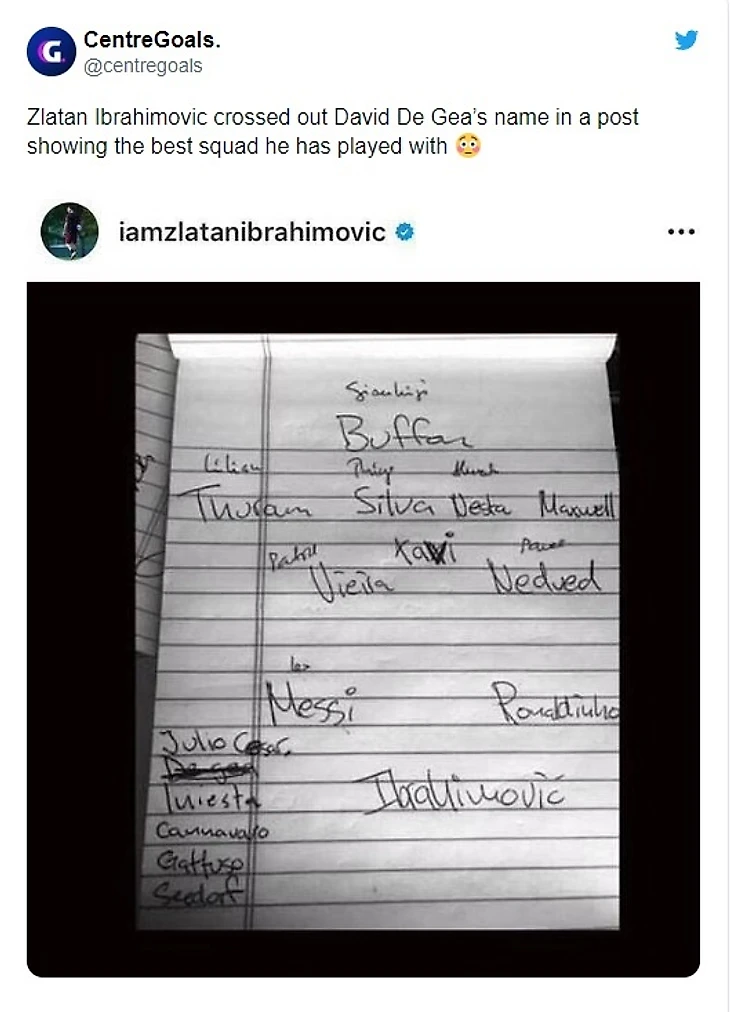 CentreGoals.
@centregoals
Zlatan Ibrahimovic crossed out David De Gea's name in a post
showing the best squad he has played with 😳
iamzlatanibrahimovic
Buffon
Lilian
Thuram Silva Nesta Maxwell
Xavi
Vieira Nedved
Leo
Messi Ronaldinho
Julio Cesar
De gea
Iniesta Ibrahimović
Cannavaro
Gattuso
Seedorf